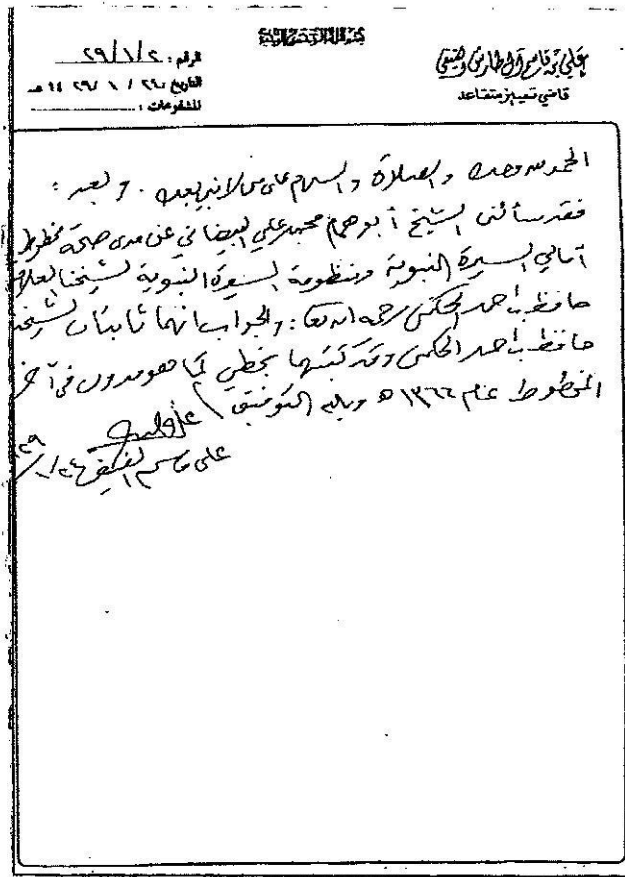 بسم الله الرحمن الرحيم
علي بن قاسم آل طارش الفيفي
قاضي تمييز متقاعد
الرقم : ٢ /١/ ٢٩
التاريخ ٢٤ / ١ / ١٤٢٩ هـ
المشفوعات :
الحمد لله وحده والصلاة والسلام على من لا نبي بعده . وبعد :
فقد سألني الشيخ أبو همام محمد علي البيضاني عن مدى صحة مخطوط
أمالي السيرة النبوية ومنظومة السيرة النبوية لشيخنا العلا
حافظ بن أحمد الحكمي رحمه الله تعا : والجواب انهما ثابتان لشيخنا
حافظ بن أحمد الحكمي وقد كتبتهما بخطي كما هو مدون في آخر
المخطوط عام ١٣٦٦ ه وبالله التوفيق
علي قاسم الفيفي ٢٤/١